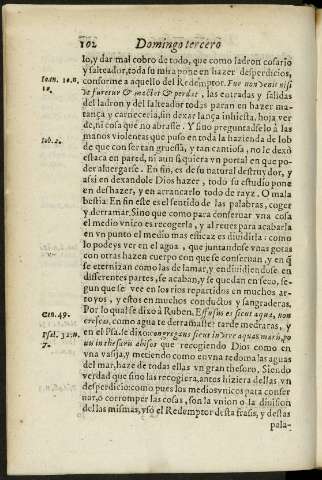 102 Domingo tercero
lo, y dar mal cobro de todo, que como ladron cosario
y salteador, toda su mira pone en hazer desperdicios,
Ioan. 10. n.
10.
conforme a aquello del Redemptor. Fur non venit nisi
vt furetur & mactet & perdat, las entradas y salidas
del ladron y del salteador todas paran en hazer ma-
tança y carneceria, sin dexar lança inhiesta, hoja ver
de, ni cosa que no abrase. Y sino preguntadselo à las
Iob. 2.
manos violentas que puso en toda la hazienda de Iob
de que con ser tan gruessa, y tan cantiosa, no le dexò
estaca en pared, ni aun siquiera vn portal en que po-
der aluergarse. En fin, es de su natural destruydor, y
assi en dexandole Dios hazer, todo su estudio pone
en deshazer, y en arrancarlo todo de rayz. O mala
bestia: En fin este es el sentido de las palabras, coger
y derramar. Sino que como para conseruar vna cosa
el medio vnico es recogerla, y al reues para acabarla
en vn punto el medio mas eficaz es diuidirla: como
lo podeys ver en el agoa, que juntandose vnas gotas
con otras hazen cuerpo con que se conseruan, y en q̃
se eternizan como las de la mar, y en diuidiendose en
differentes partes, se acaban, y se quedan en seco, se-
gun que se vee en los rios repartidos en muchos ar-
royos, y estos en muchos conductos y sangraderas.
Gen. 49.
Por lo qual se dixo à Ruben. Effusus es sicut aqua, non
crescas, como agua te derramaste: tarde medraras, y
Psal. 32. n.
7.
en el Psa. se dixo: congregans sicut in vtre aquas maris, po
nens in thesauris abissos que recogiendo Dios como en
vna vasija, y metiendo como en vna redoma las aguas
del mar, haze de todas ellas vn gran thesoro. Siendo
verdad que sino las recogiera, antes hiziera dellas vn
desperdicio: como pues los medios vnicos para conser
nar, ò corromper las cosas, son la vnion o la diuision
de las mismas, vsò el Redemptor desta frasis, y destas
pala-